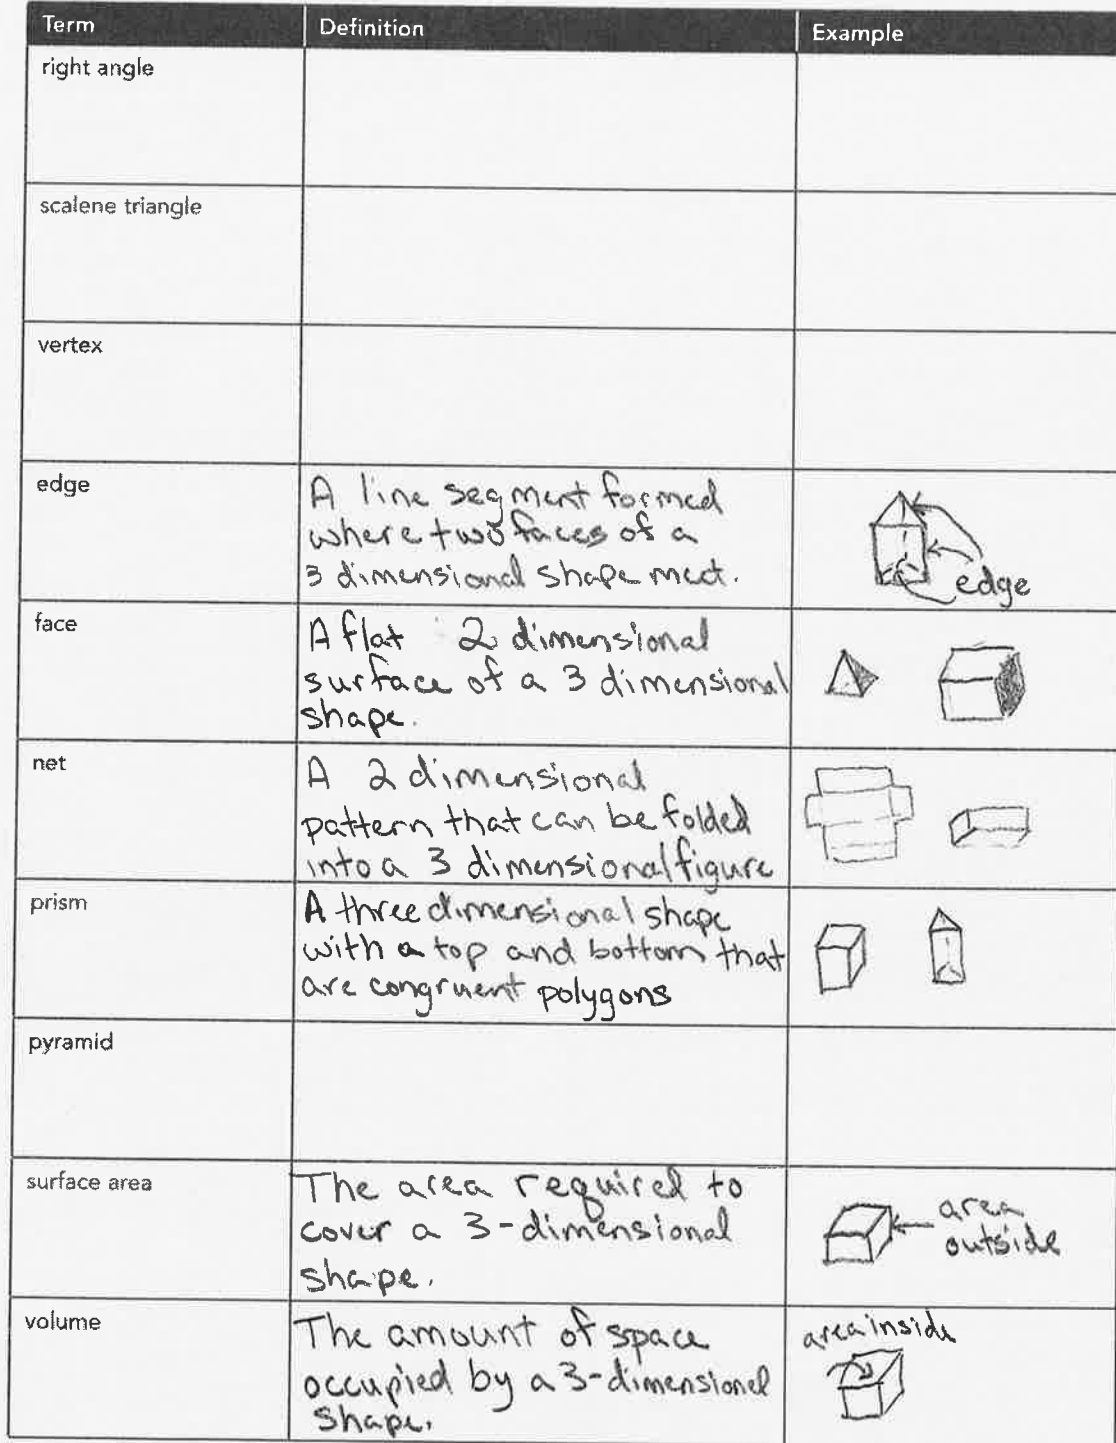 Term Definition Example
right angle
scalene triangle
vertex
edge
A line segment formed
where two faces of a
3 dimensional shape meet.
edge
face
A flat 2 dimensional
surface of a 3 dimensional
shape.
net
A 2 dimensional
pattern that can be folded
into a 3 dimensional figure
prism
A three dimensional shape
with a top and bottom that
are congruent polygons
pyramid
surface area
The area required to
cover a 3-dimensional
shape.
area
outside
volume
The amount of space
occupied by a 3-dimensional
shape.
area inside